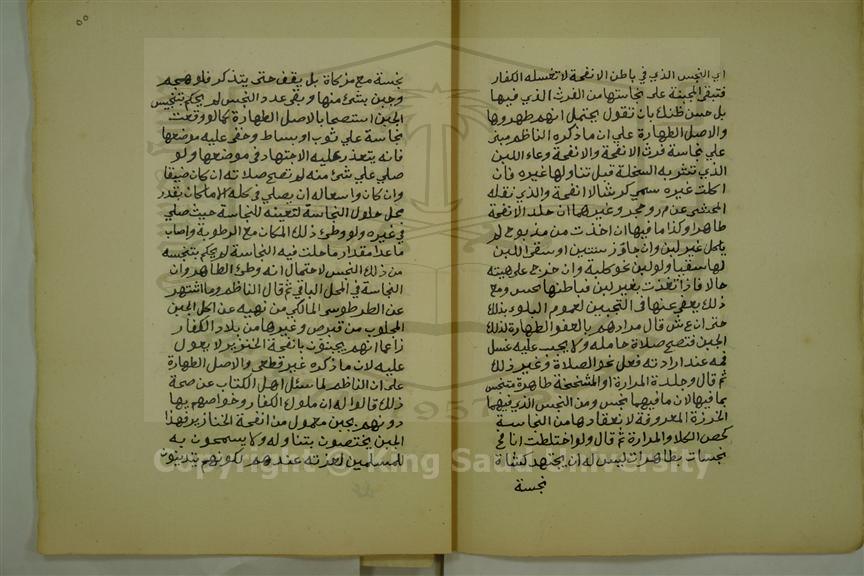 اي النجس الذي في باطن الانفحة لا تغسله الكفار
فتبقى المجبنة على نجاستها من الفرث الذي فيها
بل حسن ظنك بان تقول يحتمل انهم طهروها
والاصل الطهارة على ان ما ذكره الناظم مبني
على نجاسة فرث الانفحة والانفحة وعاء اللبن
الذي تشربه السخلة قبل تناولها غيره فان
اكلت غيره سمي كرشا لا انفحة والذي نقله
المحشي عن م ر و حجر وغيرهما ان جلد الانفحة
طاهر وكذا ما فيها ان اخذت من مذبوح لم
ياكل غير لبن وان جاوز سنتين او سقي اللبن
لها سقيا ولو لبن نحو كلبة وان خرج على هيئته
حالا فاذا تغذت بغير لبن فباطنها نجس ومع
ذلك يعفى عنها في التجبين لعموم البلوى بذلك
حتى ان ع ش قال مرادهم بالعفو الطهارة لذلك
الجبن فتصح صلاة حامله ولا يجب عليه غسل
فمه عند ارادته فعل نحو الصلاة وغير ذلك
ثم قال وجلدة المرارة او المشخخة طاهرة متنجس
بما فيها لان ما فيهما نجس ومن النجس الذي فيهما
الخرزة المعروفة لانعقادها من النجاسة
كحصى الكلا والمرارة ثم قال ولو اختلطت انافح
نجسات بطاهرات ليس له ان يجتهد كشاة
نجسة
٥٥
نجسة مع مذكاة بل يقف حتى يتذكر فلو هجم
وجبن بشئ منها وبقي عدد النجس لم يحكم بتنجيس
الجبن استصحابا لاصل الطهارة كما لو وقعت
نجاسة على ثوب او بساط وخفي عليه موضعها
فانه يتعذر عليه الاجتهاد في موضعها ولو
صلى على شئ منه لم تصح صلاته ان كان ضيقا
وان كان واسعا له ان يصلي في كله الا مكان بقدر
محل حلول النجاسة لتعينه للنجاسة حيث صلى
في غيره ولو وطئ ذلك المكان مع الرطوبة واصاب
ما عدا مقدار ما حلت فيه النجاسة لم يحكم بتنجسه
من ذلك النجس لاحتمال انه وطئ الطاهر وان
النجاسة في المحل الباقي ثم قال الناظم وما اشتهر
عن الطرطوسي المالكي من نهيه عن اكل الجبن
المجلوب من قبرص وغيرها من بلاد الكفار
زاعما انهم يجبنون بانفحة الخنزير لا يعول
عليه لان ما ذكره غير قطعي والاصل الطهارة
على ان الناظم لما سئل اهل الكتاب عن صحة
ذلك قالوا له ان ملوك الكفار وخواصهم بها
دونهم بجبن معمول من انفحة الخنازير فهذا
الجبن يختصون بتناوله ولا يسمحون به
للمسلمين لعزته عندهم لكونهم يتدينون
Copyright © King Saud University
1957